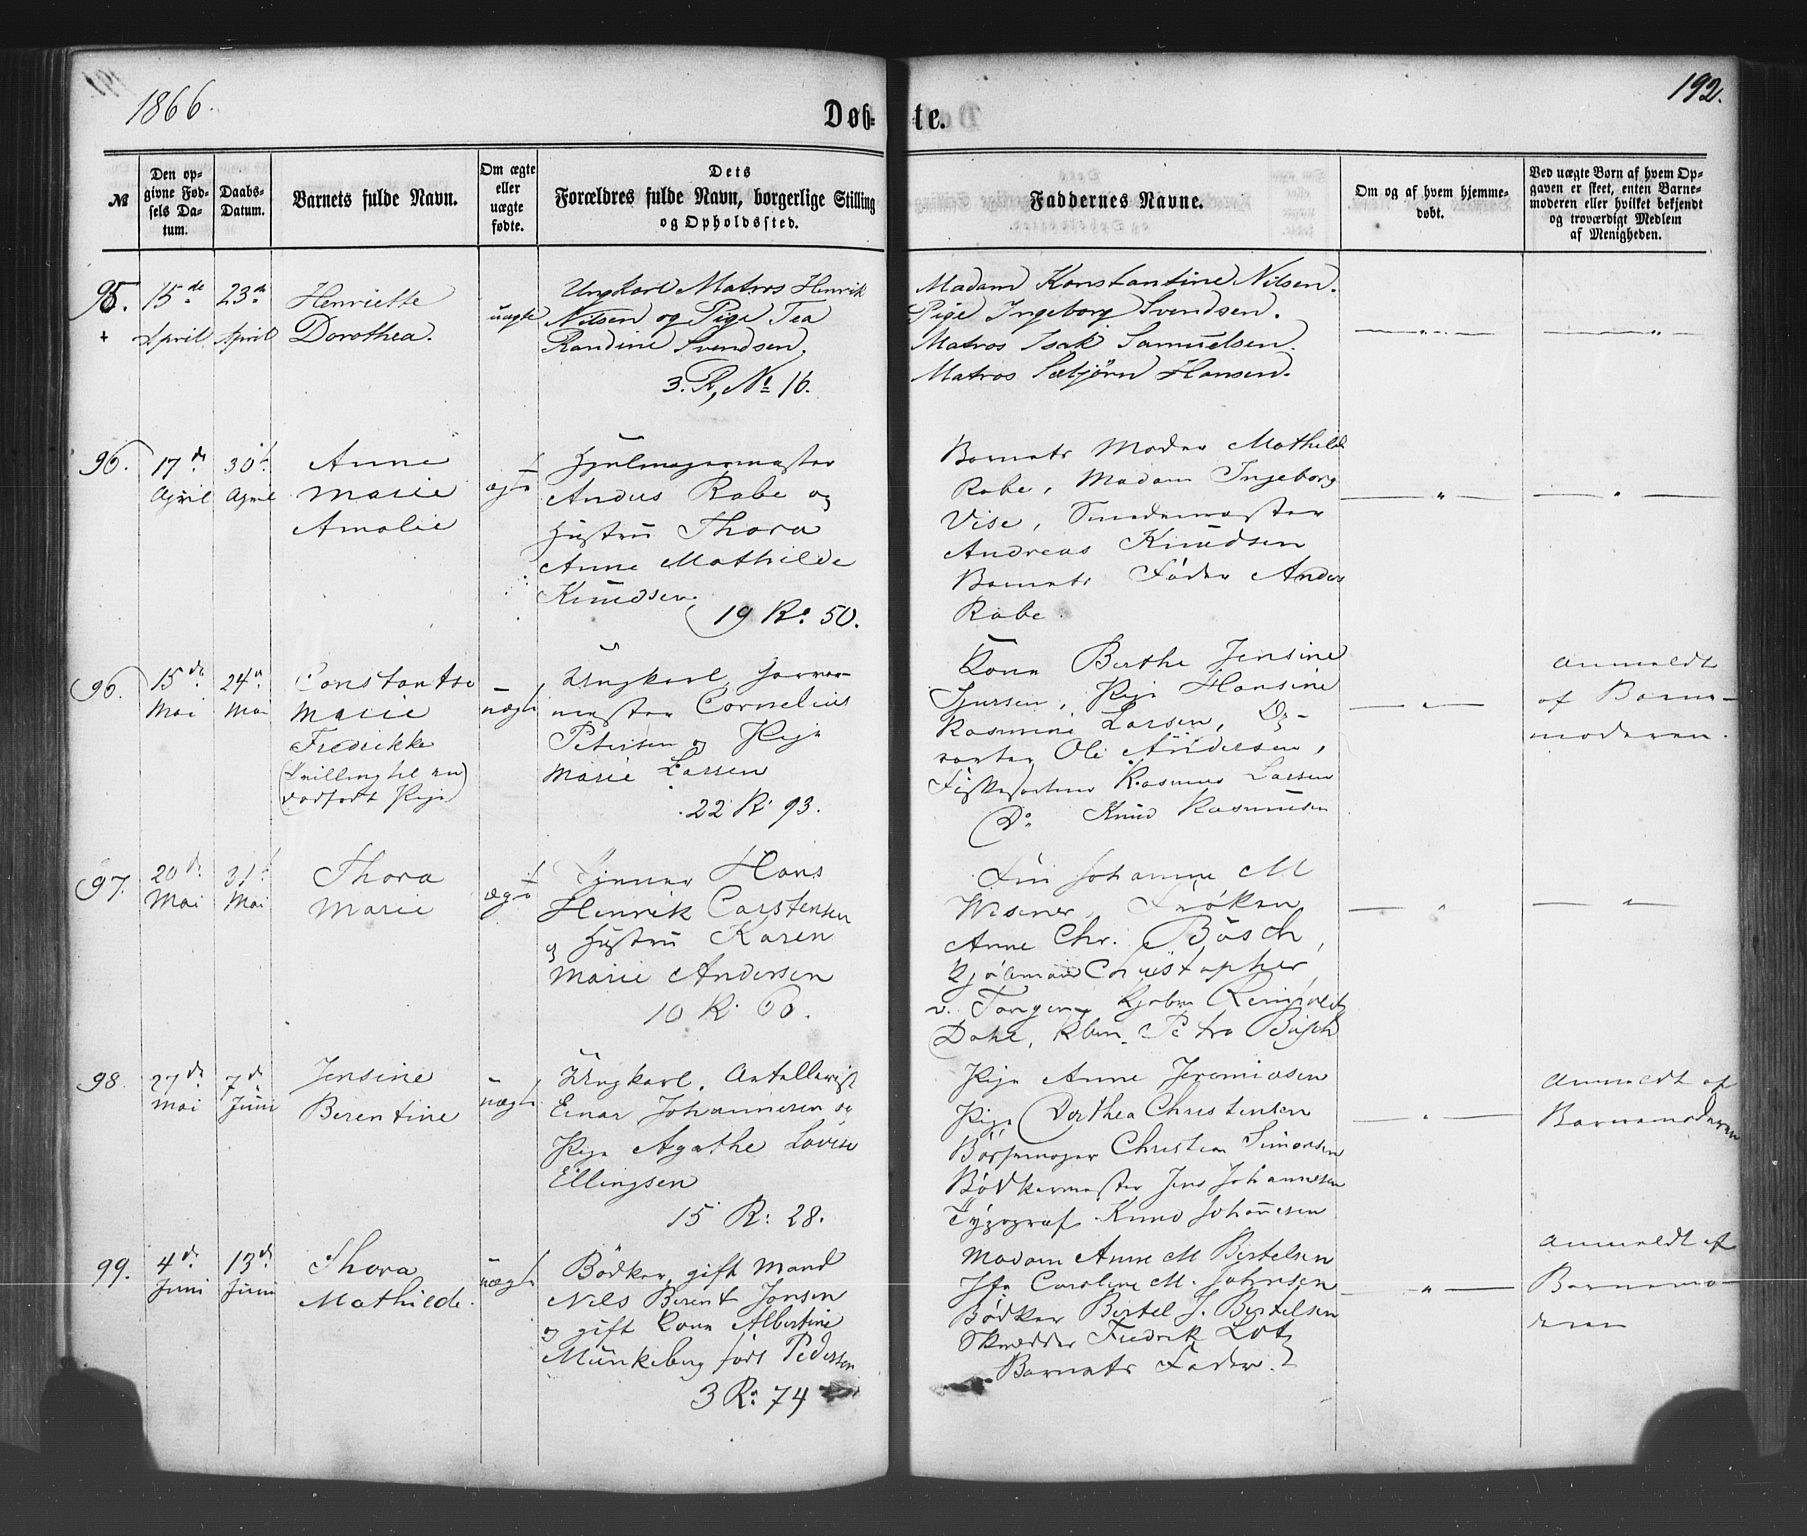 1866.
192.
Døb-te.
№
Den op-
givne Fød-
sels Da-
tum.
Daabs-
Datum.
Barnets fulde Navn.
Om ægte
eller
uægte
fødte.
Dets
Forældres fulde Navn, borgerlige Stilling
og Opholdssted.
Faddernes Navne.
Om og af hvem hjemme-
døbt.
Ved uægte Børn af hvem Op-
gaven er skeet, enten Barne-
moderen eller hvilket bekjendt
og troværdigt Medlem
af Menigheden.
95.
15de
April
23de
April
Henriette
Dorothea.
uægte
Ungkarl Matros Henrik
Nilsen og Pige Tea
Randine Svendsen.
3. R, No 16.
Madam Konstantine Nilsen.
Pige Ingeborg Svendsen.
Matros Isak Samuelsen.
Matros Sæbjörn Hansen.
96.
17de
April
30t
April
Anne
Marie
Amalie
ægte
Hjulmagermester
Anders Rabe og
Hustru Thora
Anne Mathilde
Knudsen.
19 R: 50.
Barnets Moder Mathild
Rabe, Madam Ingeborg
Vise, Smedemester
Andreas Knudsen
Barnets Fader Anders
Rabe.
96.
15de
Mai
24d
Mai
Constantse
Marie
Fredrikke
(Tvilling til en
dødfødt Pige)
uægte
Ungkarl, Farver-
mester Cornelius
Petersen og Pige
Marie Larsen
22 R: 93.
Kone Berthe Jensine
Sjursen, Pige Hansine
Rasmine Larsen,
Ole Andersen,
Rasmus Larsen
Do Knud Rasmussen
anmeldt
af Barne-
moderen.
97.
20de
Mai
31t
Mai
Thora
Marie
ægte
Tjener Hans
Henrik Carstensen
og Hustru Karen
Marie Andersen
10 R: 60.
Fru Johanne M
Wisener, Frøken
Anne Chr. Büsch,
Kjöbmand Christopher
v. Tangen, Kjøbm Reinholdt
Dahl, Kbm. Petro Büsch
98
27de
Mai
7de
Juni
Jensine
Berentine
uægte
Ungkarl, Artillerist
Einar Johannesen og
Pige Agathe Lovise
Ellingsen
15 R: 28.
Pige Anne Jeremiasen
Pige Dorthea Christensen
Børsemager Christian Simonsen
Bødkermester Jens Johannesen
Typograf Knud Johannesen
anmeldt af
Barnemoderen
99.
4de
Juni
13de
Juni
Thora
Mathilde.
uægte
Bødker, gift Mand
Nils Berent Jonsen
og gift Kone Albertine
Munkeberg født Pedersen
3 R: 74
Madam Anne M Bertelsen
Jfr. Caroline M. Johnsen
Bødker Bertel J. Bertelsen
Skrædder Fredrik Lotz
Barnets Fader.
anmeldt af
Barnemo-
deren